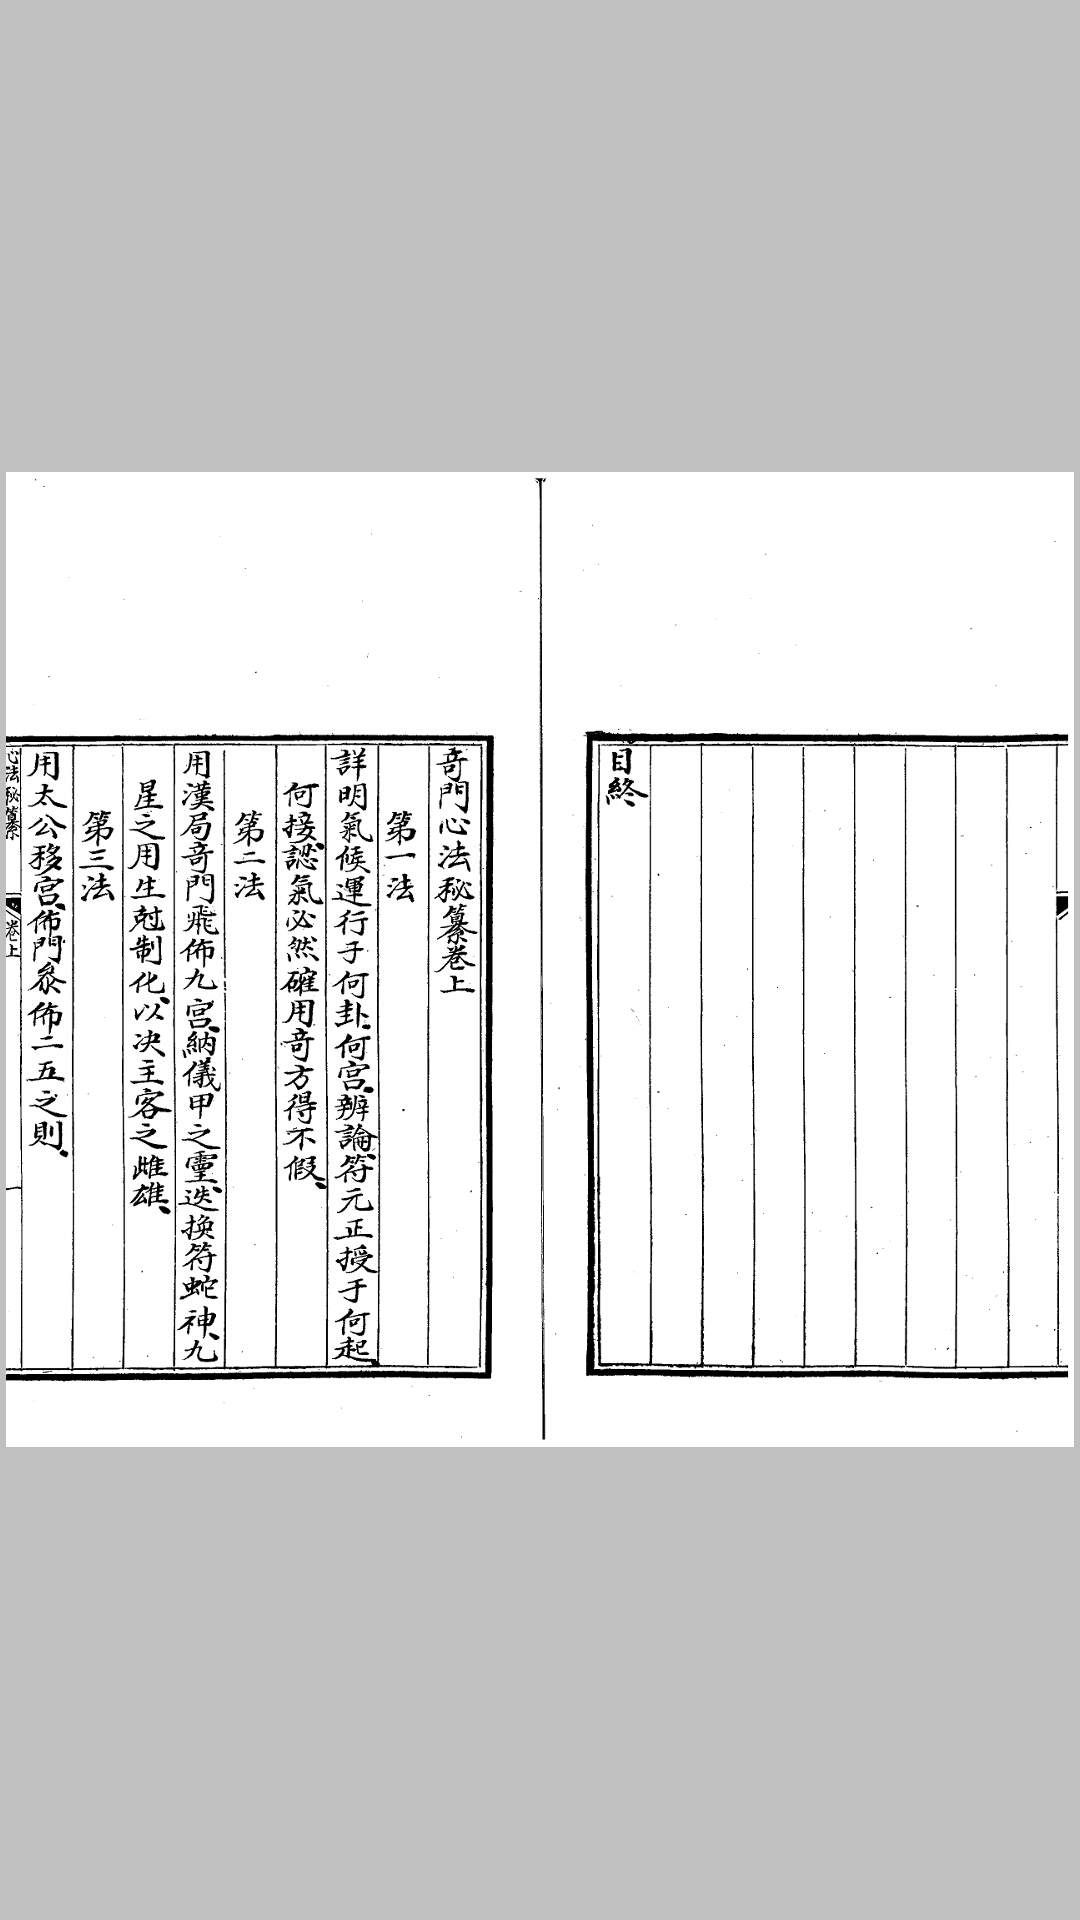 目終
奇門心法秘纂卷上
第一法
詳明氣候運行于何卦、何宮、辨論、符元正授于何起、
何接、認氣必然確用奇方得不假、
第二法
用漢局奇門飛佈九宮、納儀甲之靈、迭換符蛇神、九
星之用生尅制化、以决主客之雌雄、
第三法
用太公移宮、佈門叅佈二五之則、
心法秘纂 卷上 一